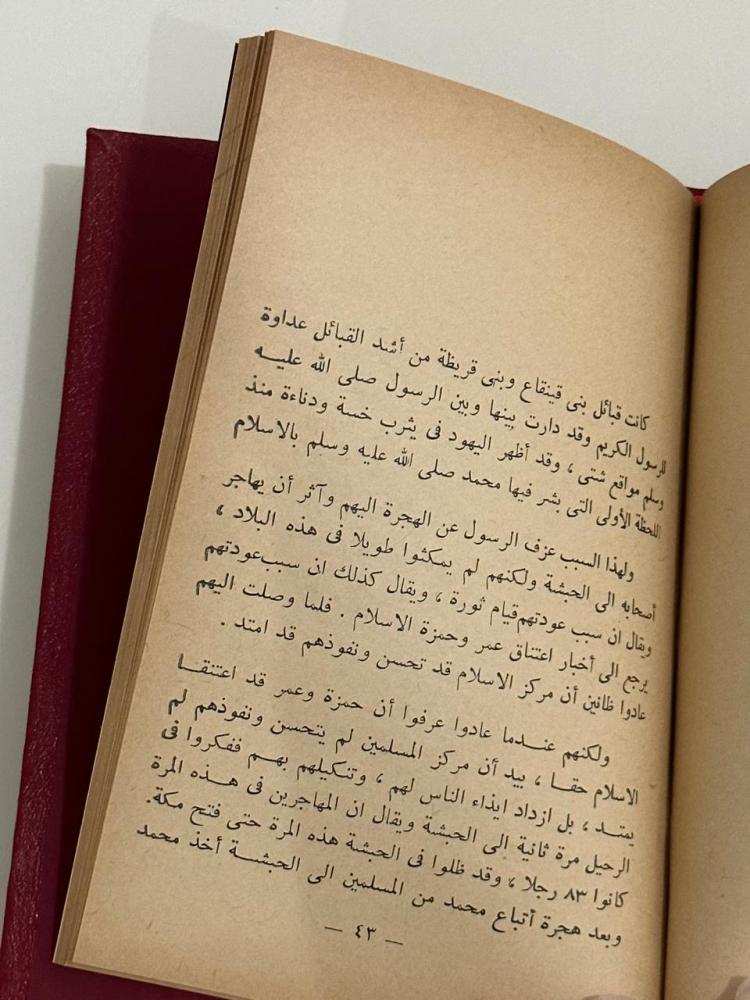 كانت قبائل بنى قينقاع وبنى قريظة من أشد القبائل عداوة
للرسول الكريم وقد دارت بينها وبين الرسول صلى الله عليــه
وسلم مواقع شتى ، وقد أظهر اليهود فى يثرب خسة ودناءة منذ
اللحظة الأولى التى بشر فيها محمد صلى الله عليه وسلم بالاسلام
ولهذا السبب عزف الرسول عن الهجرة اليهم وآثر أن يهاجر
أصحابه الى الحبشة ولكنهم لم يمكثوا طويلا فى هذه البلاد ،
ويقال ان سبب عودتهم قيام ثورة ، ويقال كذلك ان سبب عودتهم
يرجع الى أخبار اعتناق عمر وحمزة الاسلام . فلما وصلت اليهم
عادوا ظانين أن مركز الاسلام قد تحسن ونفوذهم قد امتد .
ولكنهم عنــدما عادوا عرفوا أن حمزة وعمر قد اعتنقــا
الاسلام حقــا ، بيد أن مركز المسلمين لم يتحسن ونفوذهم لم
يمتــد ، بل ازداد ايذاء الناس لهم ، وتنكيلهم بهــم ففكروا فى
الرحيل مرة ثانية الى الحبشة ويقال ان المهاجرين فى هــذه المرة
كانوا ٨٣ رجلا ، وقد ظلوا فى الحبشة هذه المرة حتى فتح مكة.
وبعد هجرة أتباع محمد من المسلمين الى الحبشــة أخذ محمد
— ٤٣ —